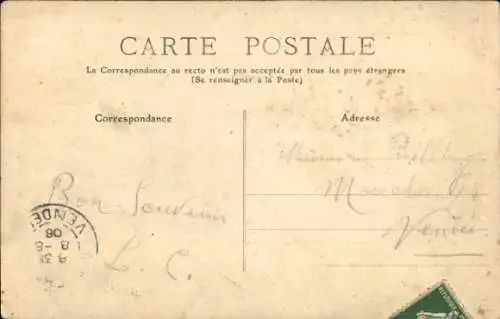 CARTE POSTALE
La Correspondance au recto n'est pas acceptée par tous les pays étrangers
(Se renseigner à la Poste)
Correspondance
Adresse
Bon Souvenir
L. C.
VENDE
08